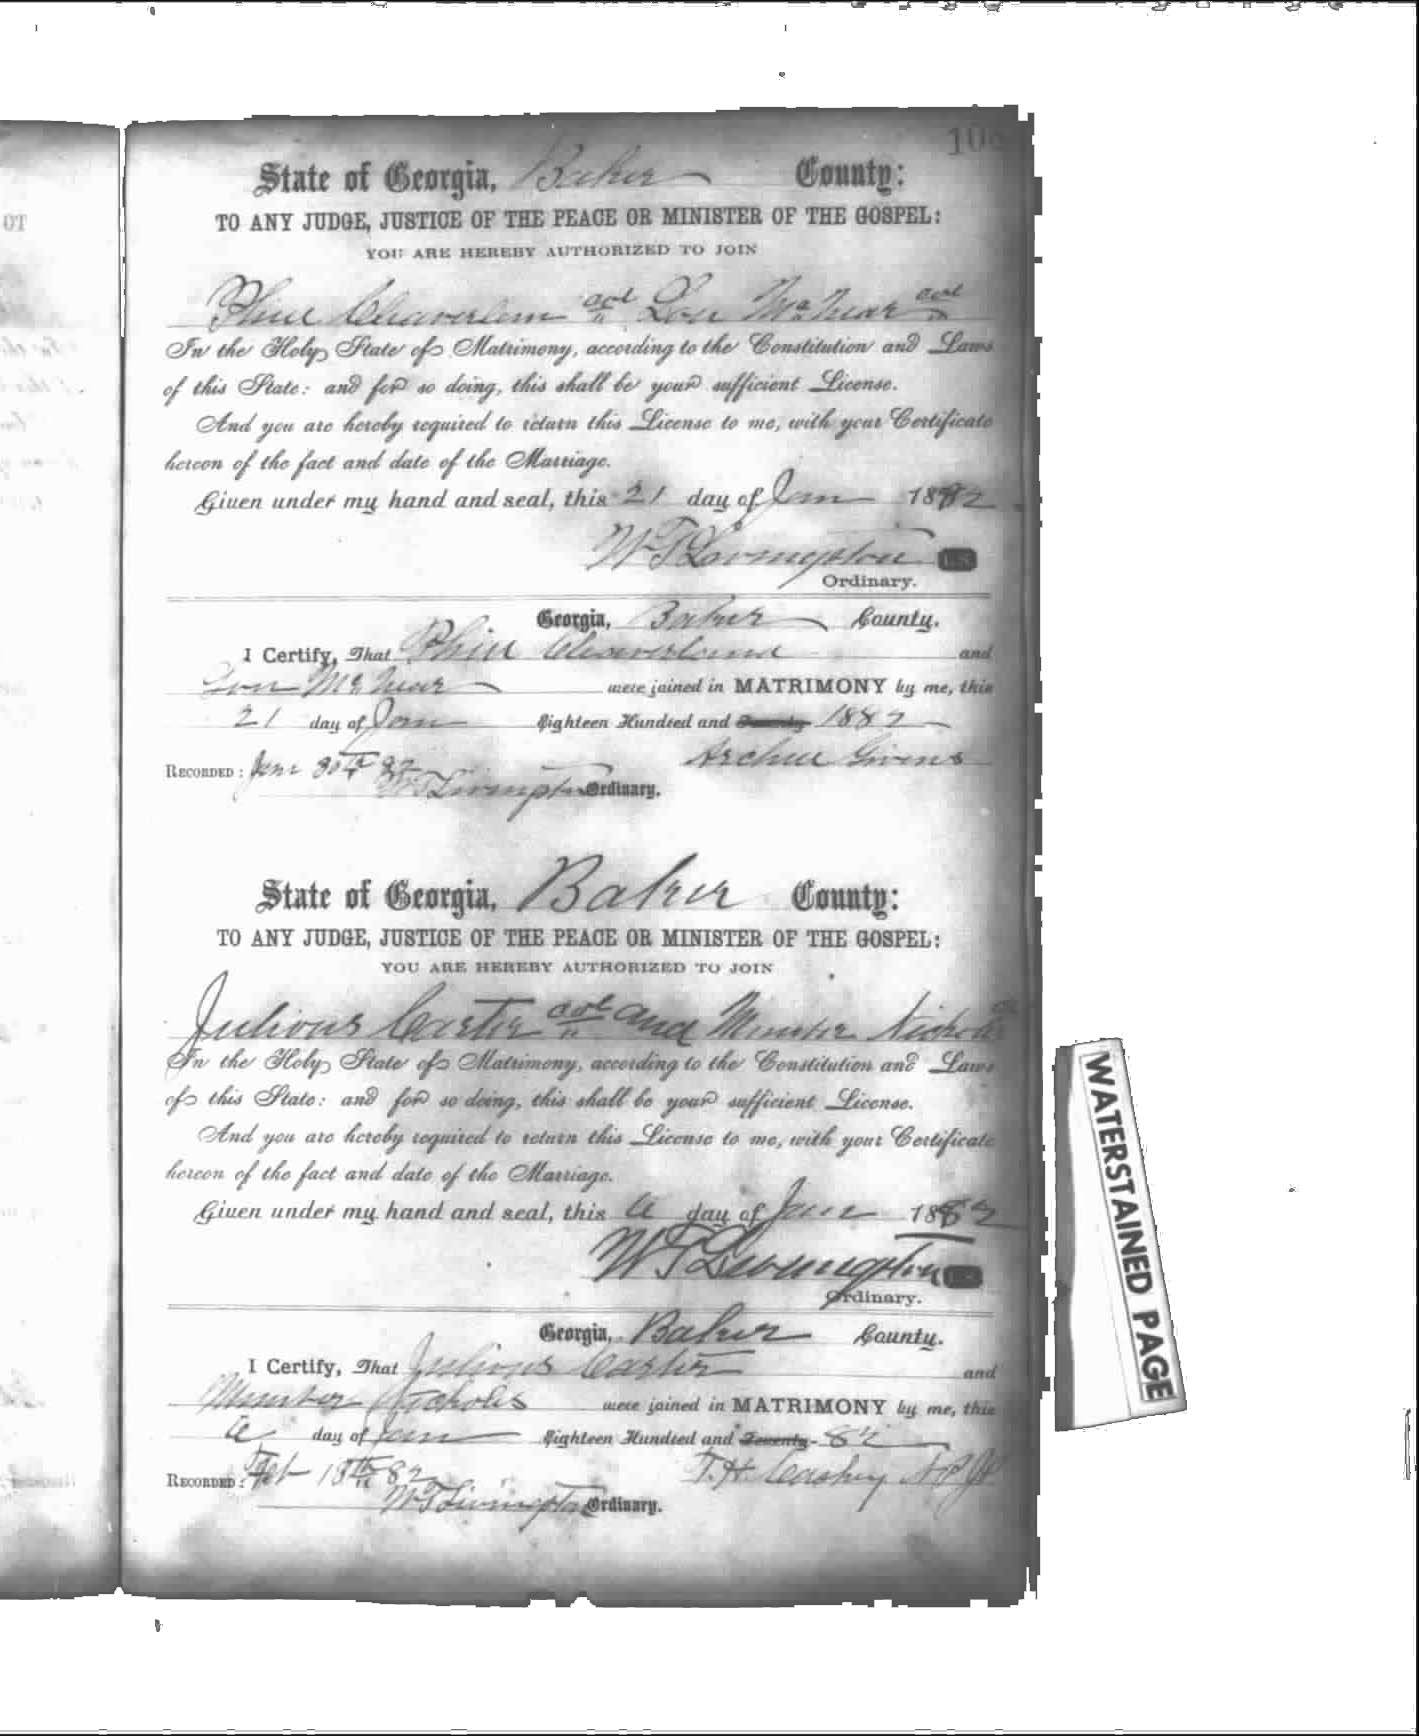 106
State of Georgia, Baker County:
TO ANY JUDGE, JUSTICE OF THE PEACE OR MINISTER OF THE GOSPEL:
YOU ARE HEREBY AUTHORIZED TO JOIN
col Lou McNear col
In the Holy State of Matrimony, according to the Constitution and Laws
of this State: and for so doing, this shall be your sufficient License.
And you are hereby required to return this License to me, with your Certificate
hereon of the fact and date of the Marriage.
Given under my hand and seal, this 21 day of Jan 1882
W T Livingston L.S.
Ordinary.
Georgia, Baker County.
I Certify, That and
Lou McNear were joined in MATRIMONY by me, this
21 day of Jan Eighteen Hundred and Seventy 1882
Archie Givens
RECORDED: Jan 30th 82
W T Livingston Ordinary.
State of Georgia, Baker County:
TO ANY JUDGE, JUSTICE OF THE PEACE OR MINISTER OF THE GOSPEL:
YOU ARE HEREBY AUTHORIZED TO JOIN
Julious Carter col and Nichols
In the Holy State of Matrimony, according to the Constitution and Laws
of this State: and for so doing, this shall be your sufficient License.
And you are hereby required to return this License to me, with your Certificate
hereon of the fact and date of the Marriage.
Given under my hand and seal, this day of Jan 1882
W T Livingston L.S.
Ordinary.
Georgia, Baker County.
I Certify, That Julious Carter and
Nichols were joined in MATRIMONY by me, this
day of Jan Eighteen Hundred and Seventy - 82
T. H. Caskey N P J P
RECORDED: Feb 18th 82
W T Livingston Ordinary.
WATERSTAINED PAGE